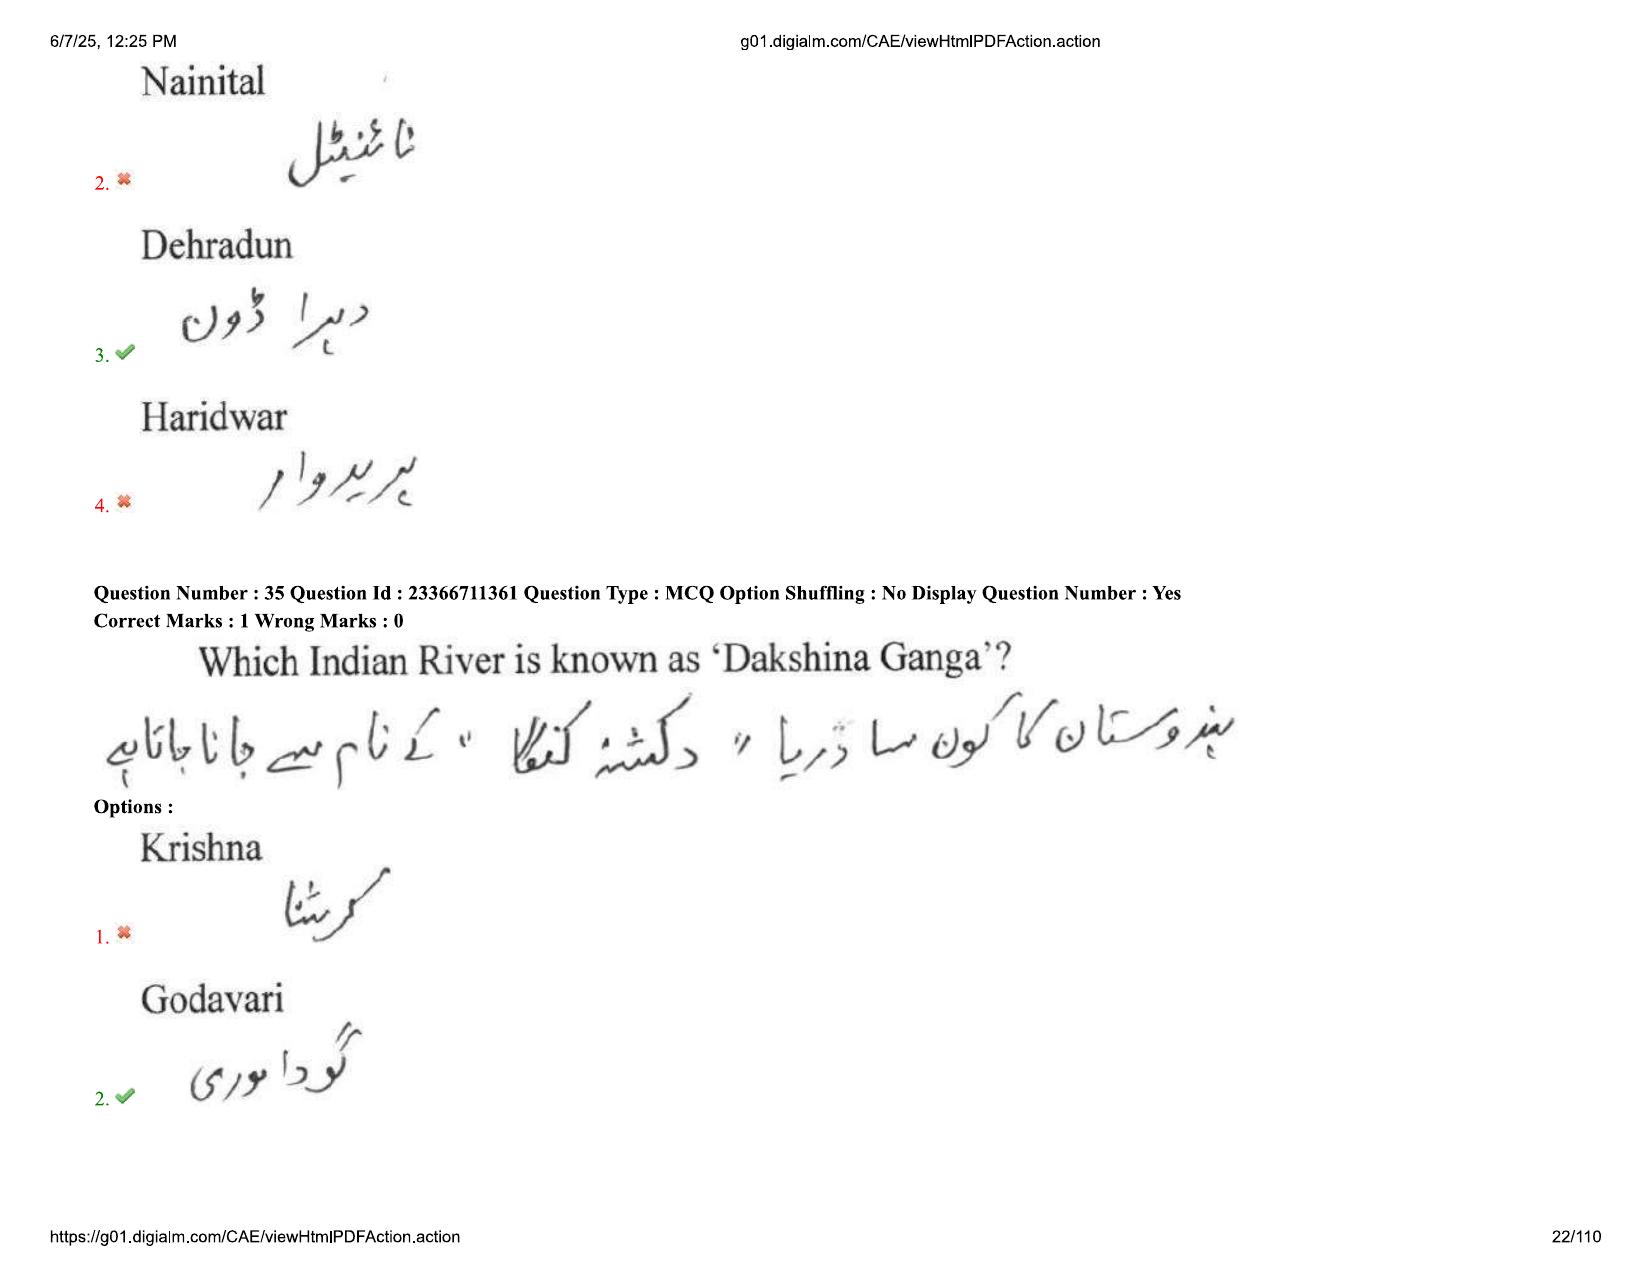 6/7/25, 12:25 PM g01.digialm.com/CAE/viewHtmlPDFAction.action
Nainital
نائنیٹل
2.
Dehradun
دہرا ڈون
3.
Haridwar
ہریدوار
4.
Question Number : 35 Question Id : 23366711361 Question Type : MCQ Option Shuffling : No Display Question Number : Yes
Correct Marks : 1 Wrong Marks : 0
Which Indian River is known as ‘Dakshina Ganga’?
ہندوستان کا کون سا دریا " دکشنہ گنگا " کے نام سے جانا جاتا ہے
Options :
Krishna
کرشنا
1.
Godavari
گوداوری
2.
https://g01.digialm.com/CAE/viewHtmlPDFAction.action 22/110